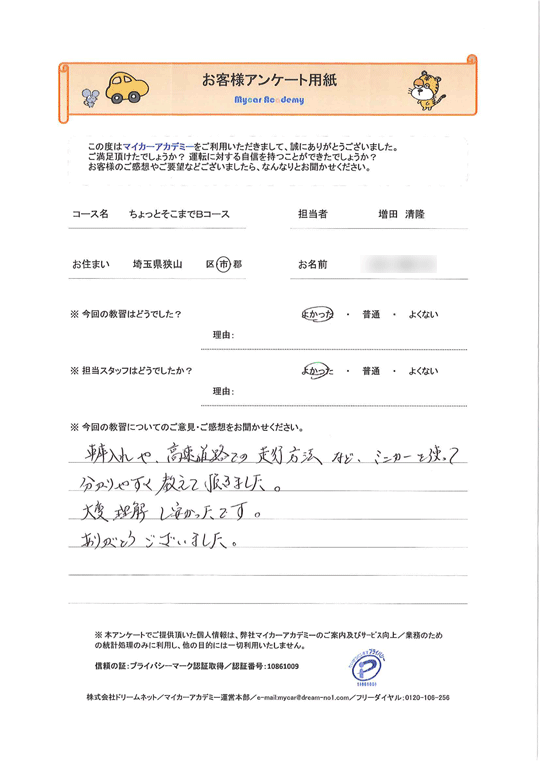 お客様アンケート用紙
Mycar Academy
この度はマイカーアカデミーをご利用いただきまして、誠にありがとうございました。
ご満足頂けたでしょうか？ 運転に対する自信を持つことができたでしょうか？
お客様のご感想やご要望などございましたら、なんなりとお聞かせください。
コース名 ちょっとそこまでBコース 担当者 増田 清隆
お住まい 埼玉県狭山 区 市 郡 お名前
※ 今回の教習はどうでした？ よかった ・ 普通 ・ よくない
理由：
※ 担当スタッフはどうでしたか？ よかった ・ 普通 ・ よくない
理由：
※ 今回の教習についてのご意見・ご感想をお聞かせください。
車庫入れや、高速道路での走行方法など、ミニカーを使って
分かりやすく教えて頂きました。
大変理解し易かったです。
ありがとうございました。
※ 本アンケートでご提供頂いた個人情報は、弊社マイカーアカデミーのご案内及びサービス向上／業務のため
の統計処理のみに利用し、他の目的には一切利用いたしません。
信頼の証：プライバシーマーク認証取得／認証番号：10861009
株式会社ドリームネット／マイカーアカデミー運営本部／e-mail:mycar@dream-no1.com／フリーダイヤル：0120-106-256